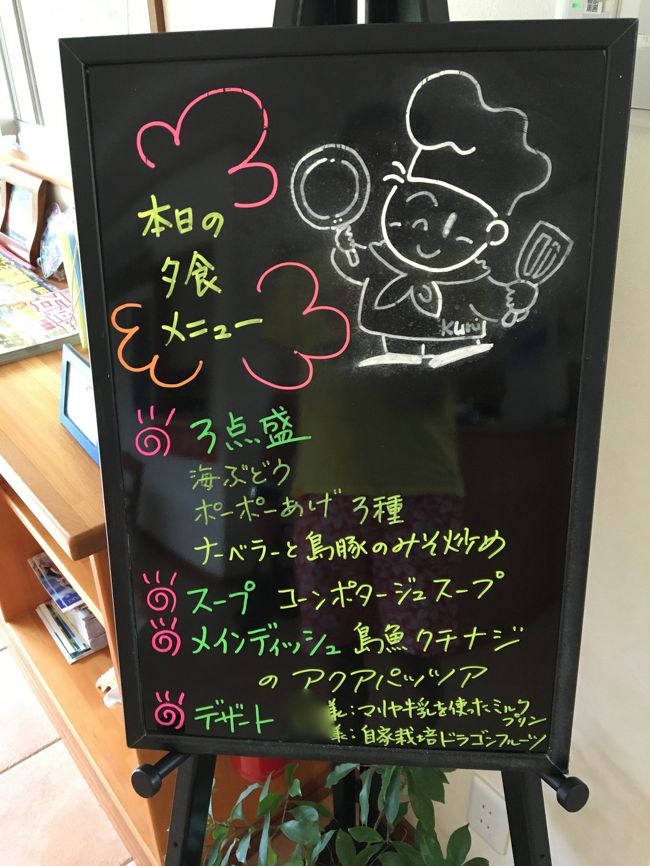 本日の
夕食
メニュー
Kuni
3点盛
海ぶどう
ポーポーあげ 3種
ナーベラーと島豚のみそ炒め
スープ コーンポタージュスープ
メインディッシュ 島魚クチナジ
のアクアパッツァ
デザート
：マリヤ牛乳を使ったミルク
プリン
：自家栽培ドラゴンフルーツ